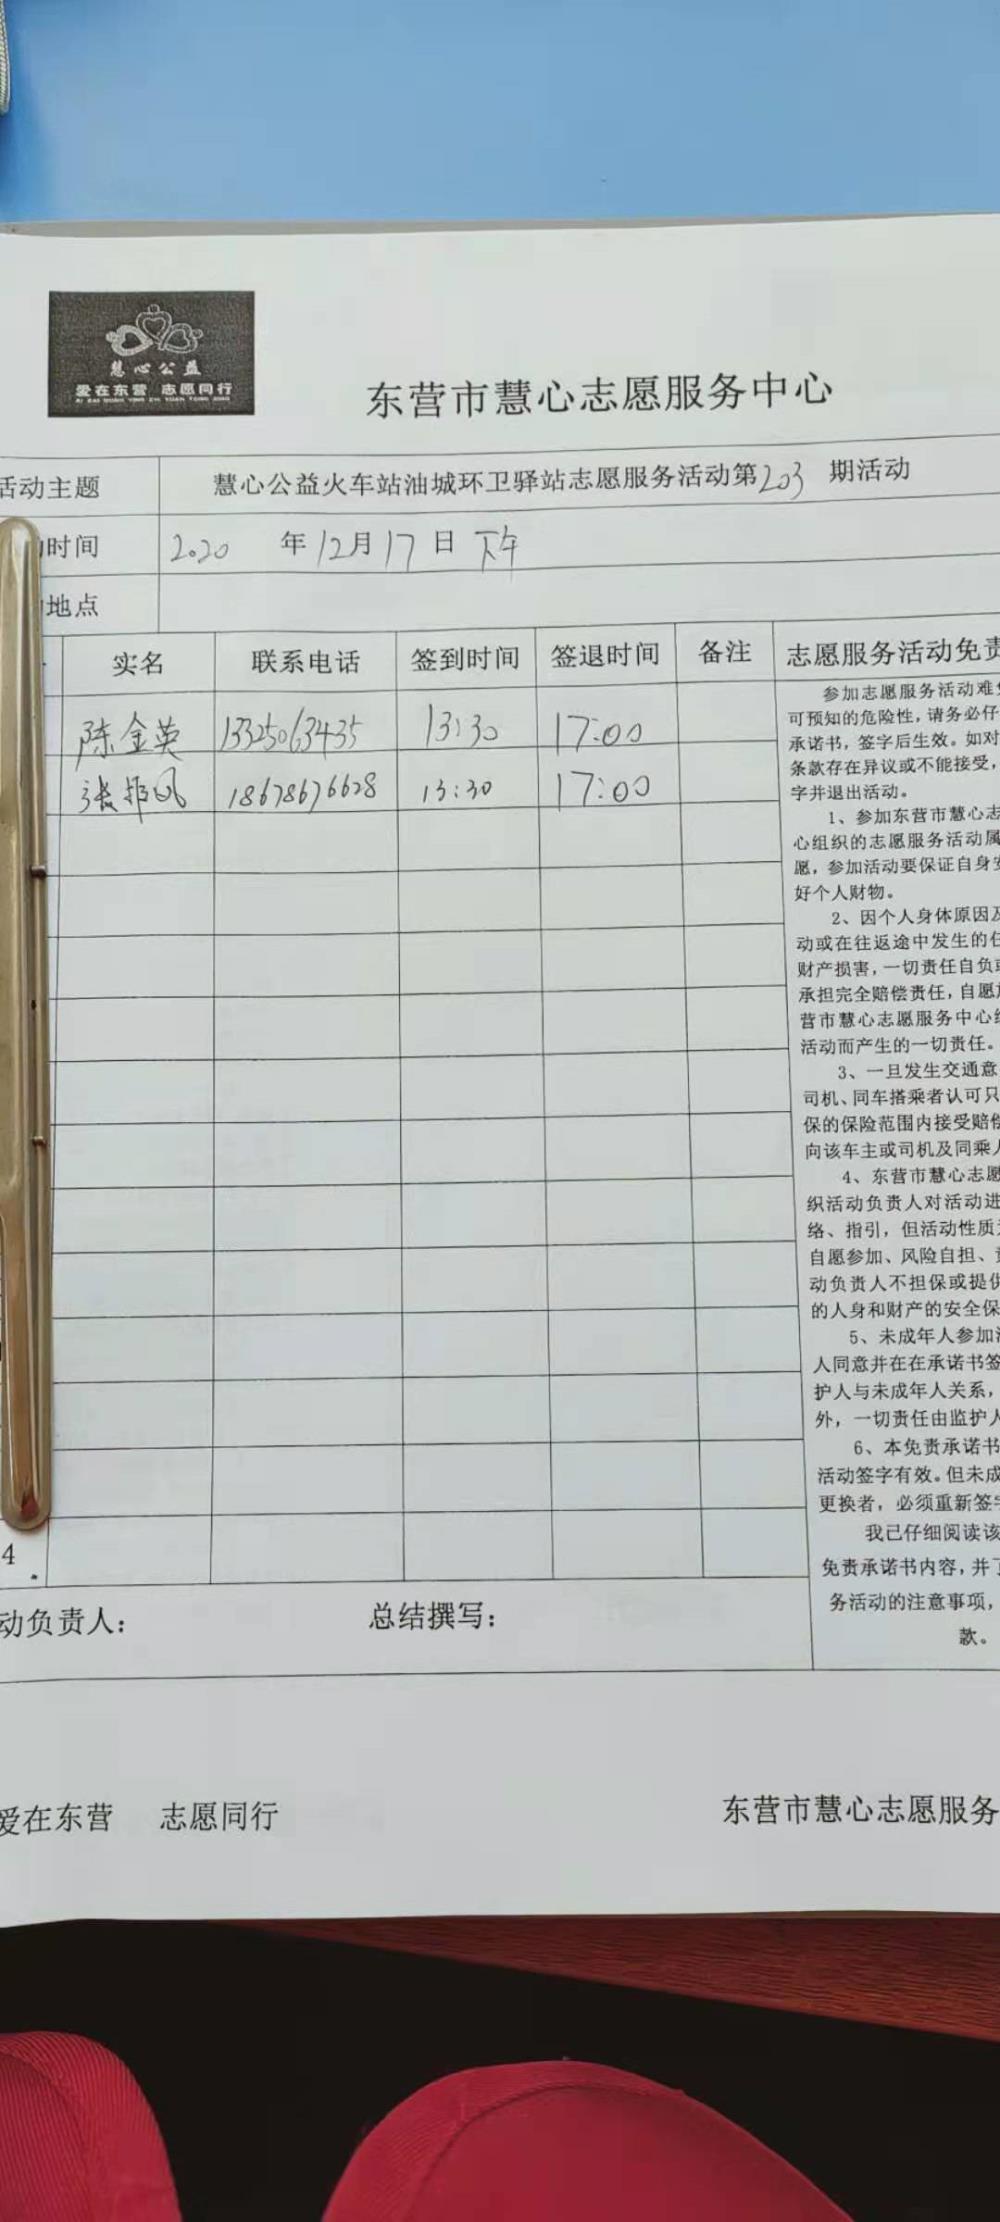 慧心公益
爱在东营 志愿同行
东营市慧心志愿服务中心
活动主题 慧心公益火车站油城环卫驿站志愿服务活动第203期活动
时间 2020 年 12月 17 日 下午
地点
实名 联系电话 签到时间 签退时间 备注 志愿服务活动免责
陈金英 13325063435 13:30 17:00
张 风 18678676628 13:30 17:00
参加志愿服务活动难免
可预知的危险性，请务必仔
承诺书，签字后生效。如对
条款存在异议或不能接受，
字并退出活动。
1、参加东营市慧心志
心组织的志愿服务活动属
愿，参加活动要保证自身安
好个人财物。
2、因个人身体原因及
动或在往返途中发生的任
财产损害，一切责任自负或
承担完全赔偿责任，自愿放
营市慧心志愿服务中心组
活动而产生的一切责任。
3、一旦发生交通意
司机、同车搭乘者认可只
保的保险范围内接受赔偿
向该车主或司机及同乘人
4、东营市慧心志愿
织活动负责人对活动进
络、指引，但活动性质为
自愿参加、风险自担、责
动负责人不担保或提供
的人身和财产的安全保
5、未成年人参加活
人同意并在在承诺书签
护人与未成年人关系，
外，一切责任由监护人
6、本免责承诺书
活动签字有效。但未成
更换者，必须重新签字
我已仔细阅读该
免责承诺书内容，并了
务活动的注意事项，
款。
4
动负责人： 总结撰写：
爱在东营 志愿同行 东营市慧心志愿服务